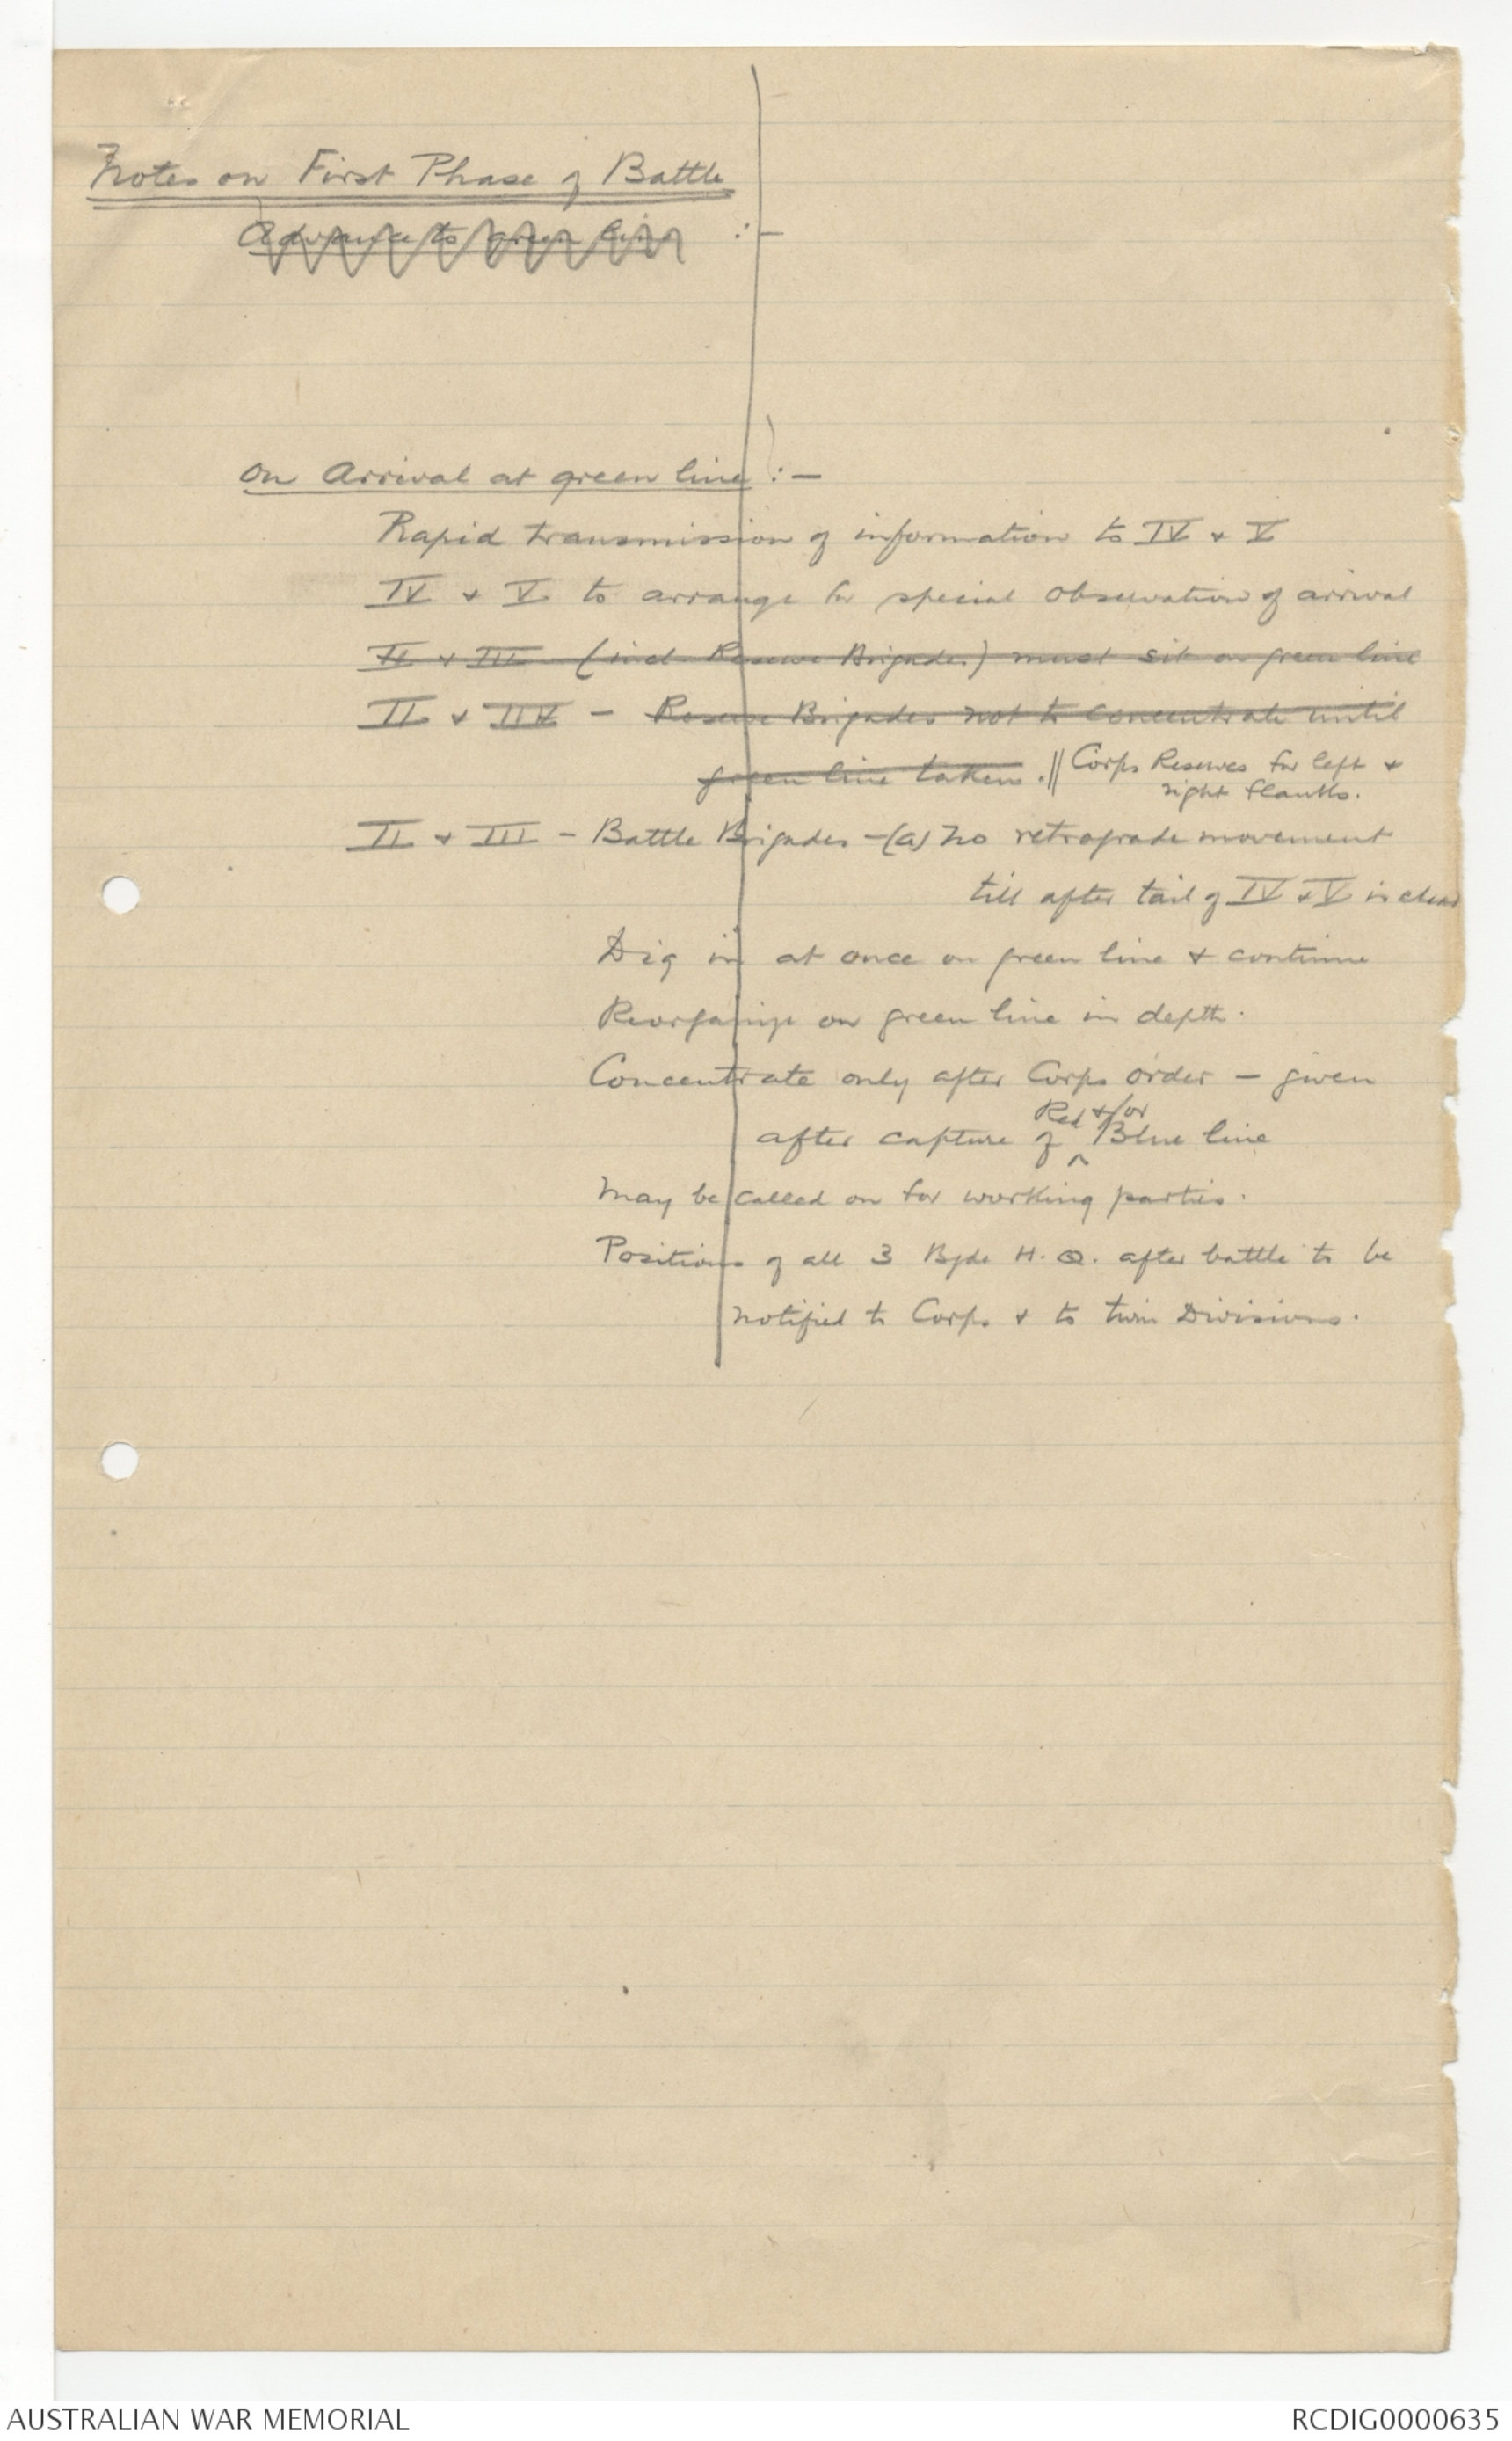 Notes on First Phase of Battle
Advance to green line :-
On Arrival at green line :-
Rapid transmission of information to IV & V
IV & V to arrange for special observation of arrival
II & III (incl. Reserve Brigades) must sit on green line
II & III - Reserve Brigades not to concentrate until
green line taken. // Corps Reserves for left &
right flanks.
II & III - Battle Brigades - (a) No retrograde movement
till after tail of IV & V is clear
Dig in at once on green line & continue
Reorganize on green line in depth.
Concentrate only after Corps order - given
Red &/or
after capture of ^ Blue line
May be called on for working parties.
Positions of all 3 Bgde H.Q. after battle to be
notified to Corps & to twin Divisions.
AUSTRALIAN WAR MEMORIAL
RCDIG0000635